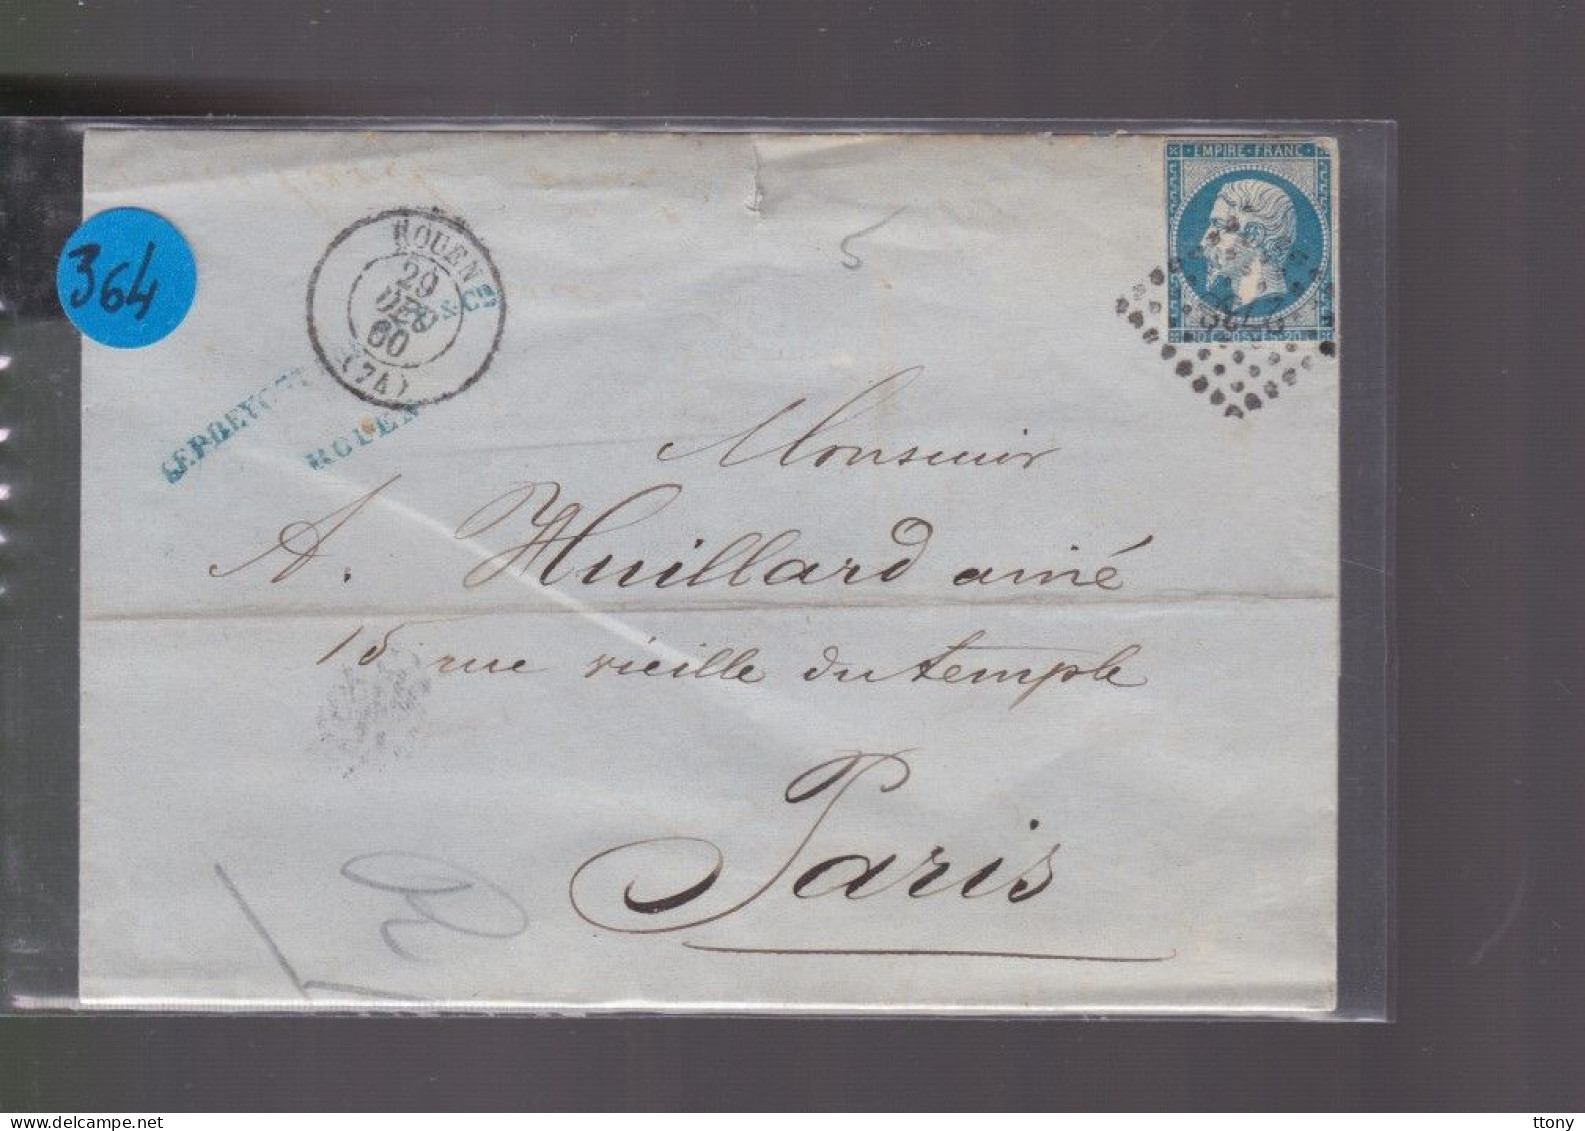 EMPIRE · FRANC ·
20 C · POSTES · 20
364
ROUEN
29
DEC
60
(74)
& Cie
ROUEN
5
Monsieur
A. Huillard ainé
15 rue vieille du temple
Paris
www.delcampe.net
ttony